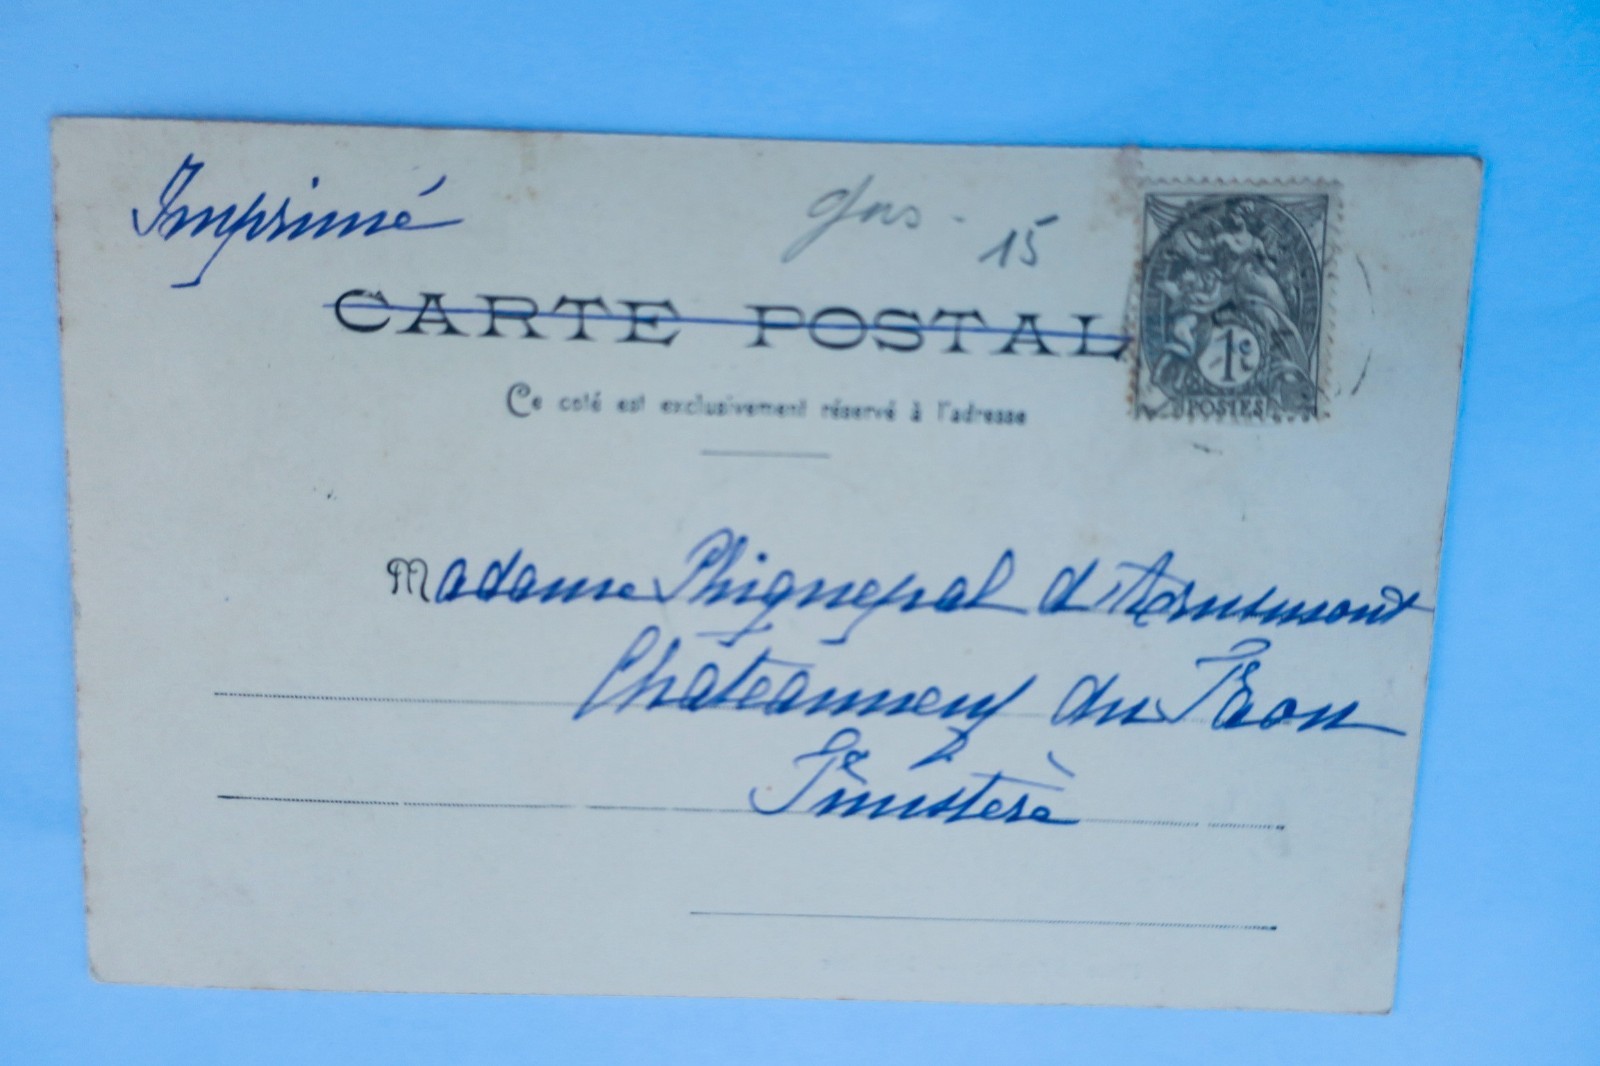 Imprimé
15
CARTE POSTAL
1c
POSTES
Ce coté est exclusivement réservé à l'adresse
Madame Phiquepal d'Arusmont
Châteauneuf du Faou
Finistère